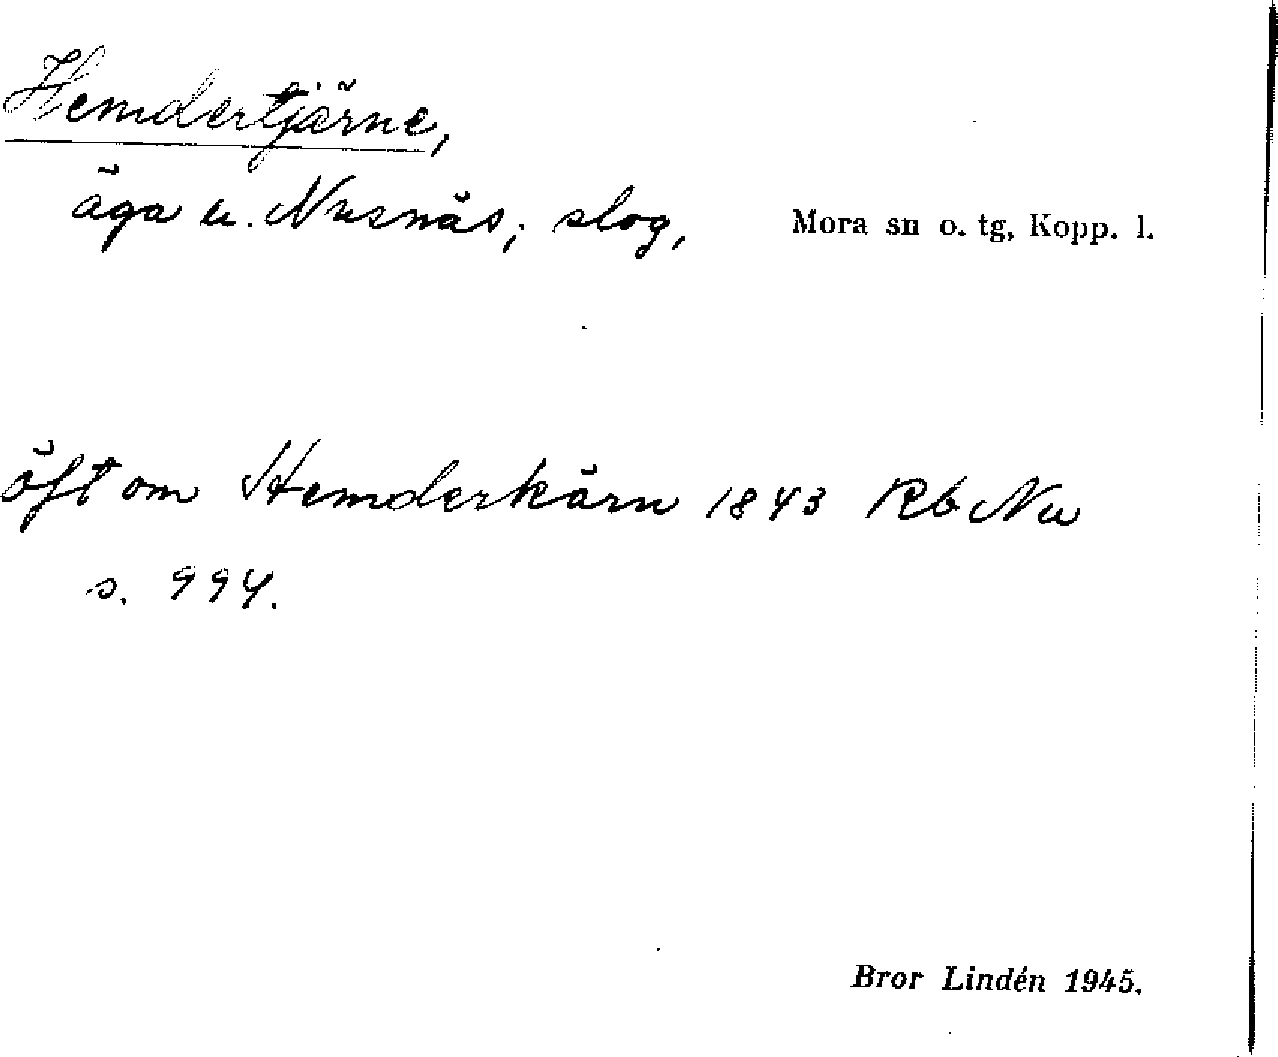 Hemdertjärne,
äga u. Nusnäs; slog, Mora sn o. tg, Kopp. l.
öft om Hemderkärn 1843 Rb Nu
s. 994.
Bror Lindén 1945.